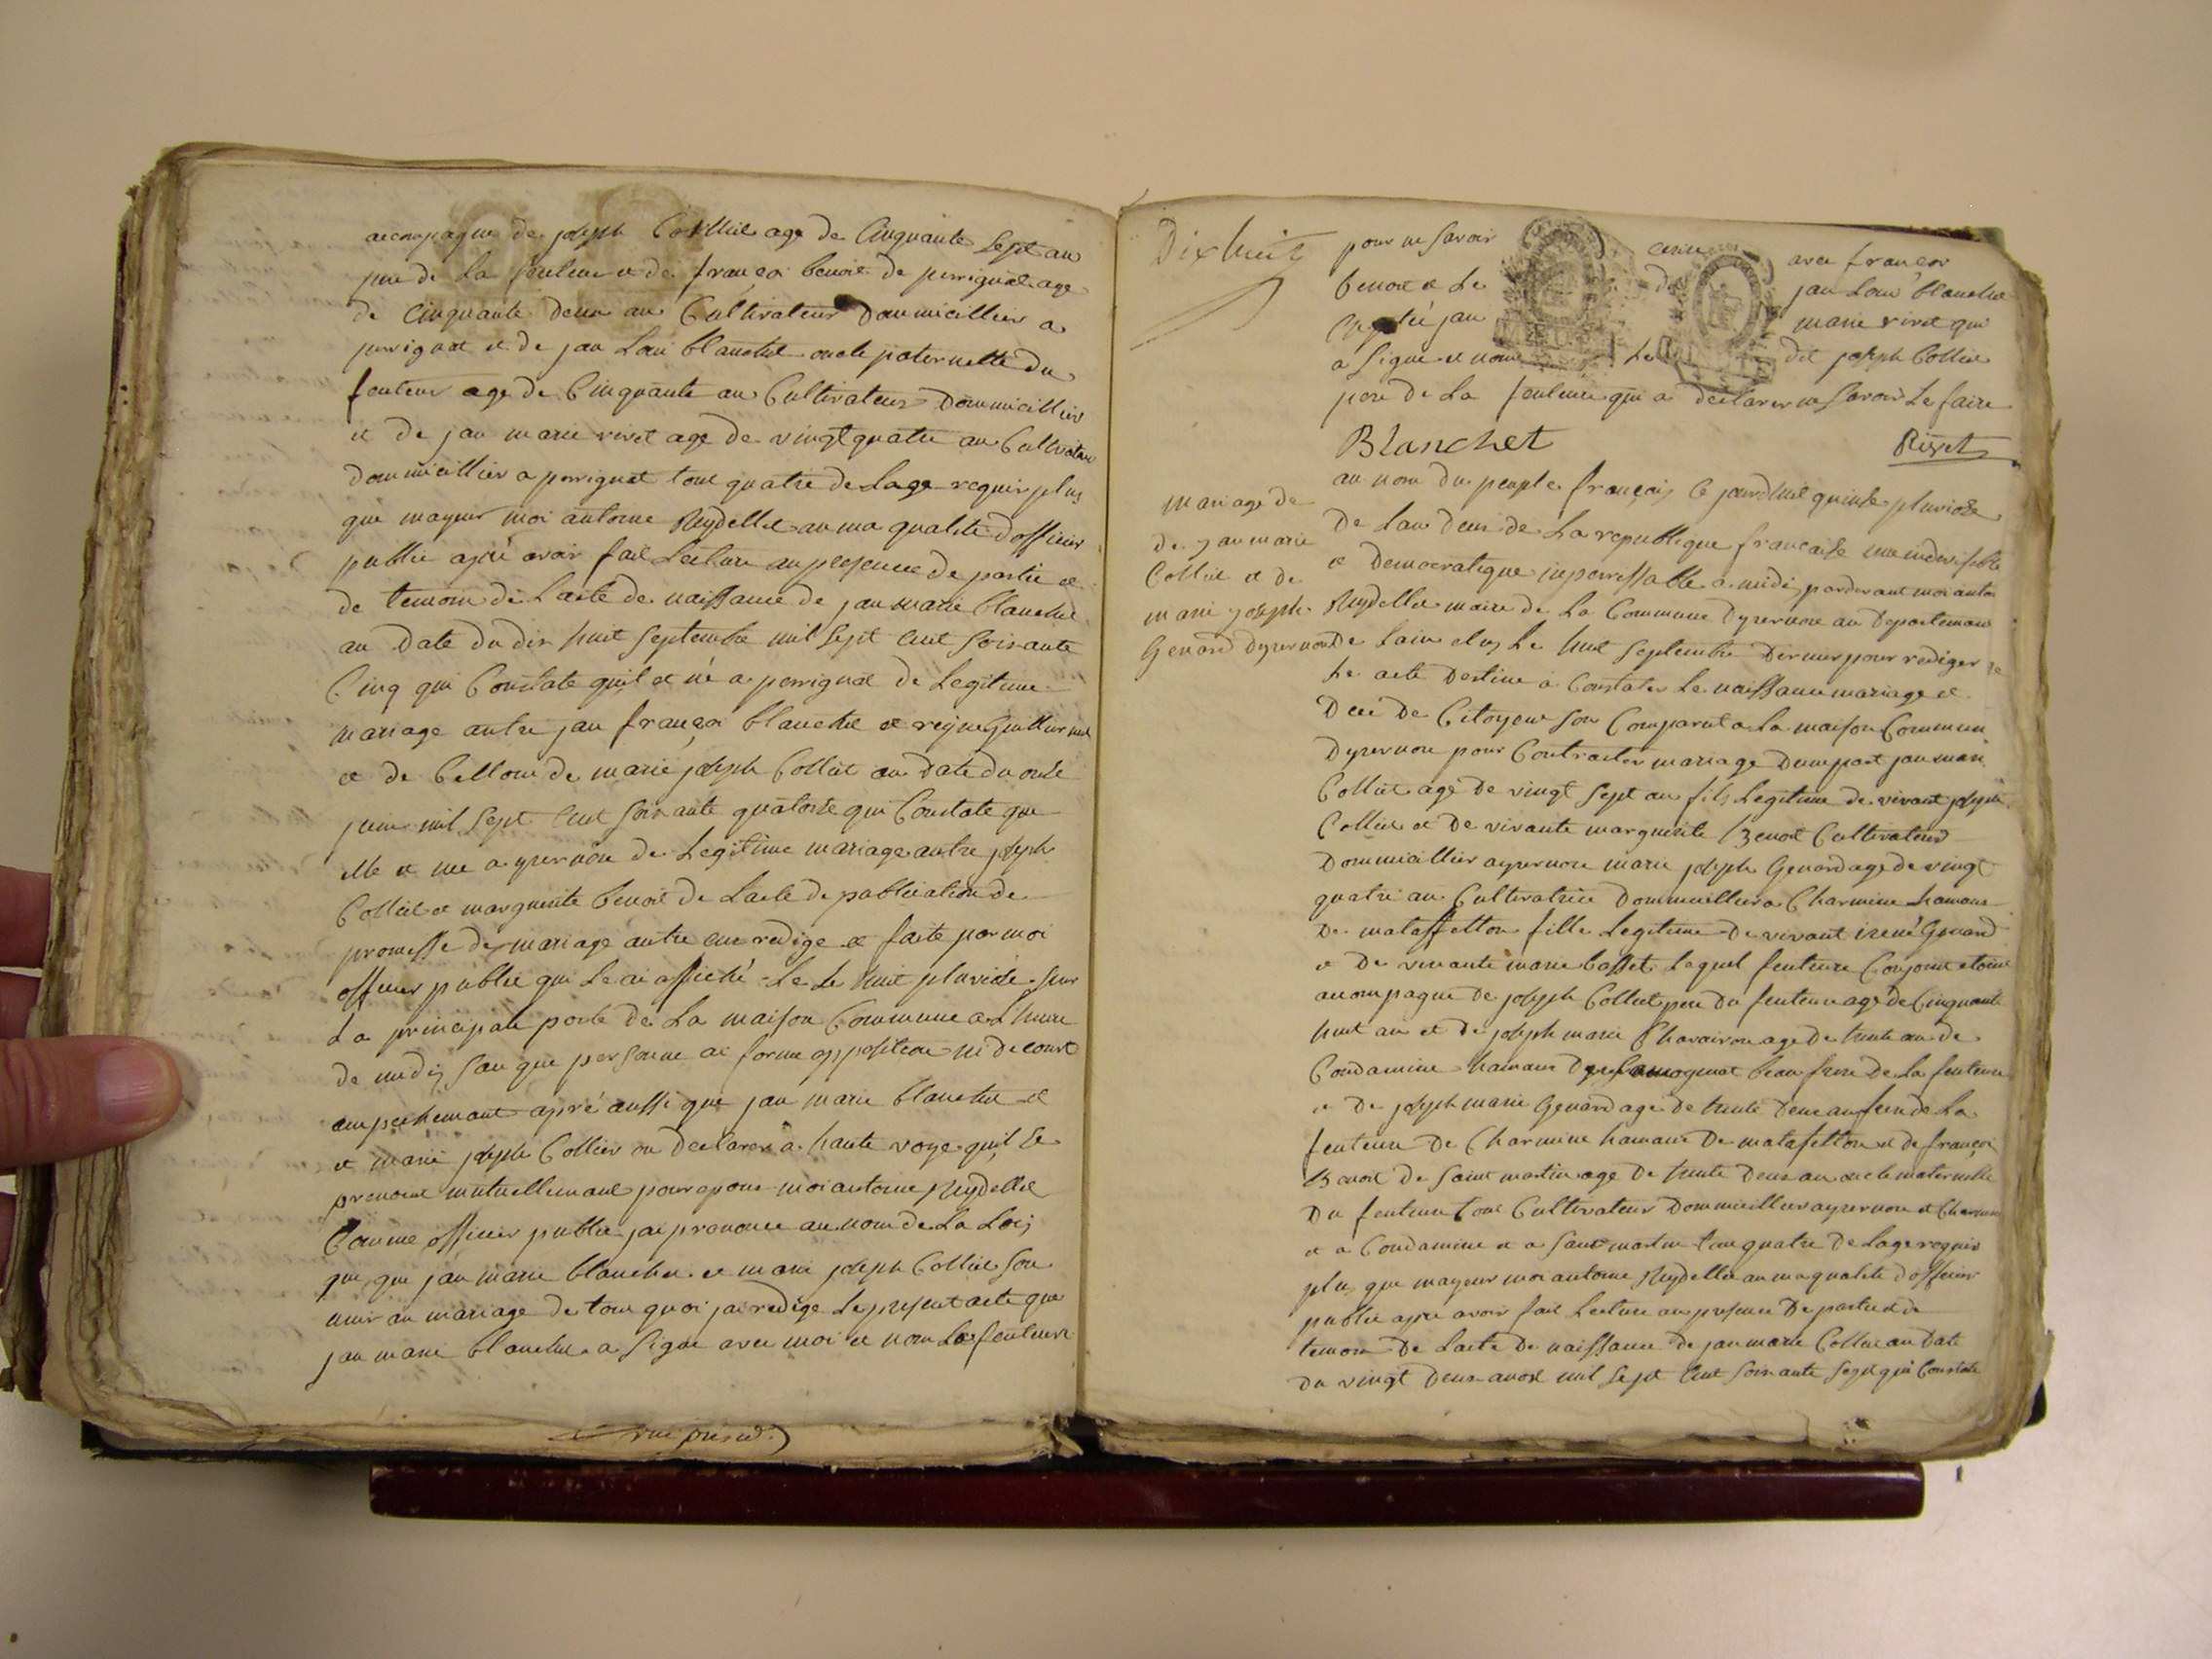 accompagne de joseph Colliet age de Cinquante Sept an
pere de La future et de françoi benoit de perrignat age
de Cinquante deux an Cultivateur Doumicillier a
perrignat et de jan Loui blanchet oncle paternelle du
futeur age de Cinquante an Cultivateur Doumicillier
et de jan marie rivet age de vingt quatre an Cultivateur
Doumicillier a perrignat tout quatre de Lage requir plus
que mayeur moi antoine Reydellet an ma qualite dofficier
public apré avoir fait Lecture an presence de partie et
de temoin de Lacte de naissance de jan marie blanchet
an Date du dix huit Septembre mil Sept cent Soixante
Cinq qui Constate quil et né a perrignat de Legitime
mariage antre jan françoi blanchet et reyne
et de Celloui de marie joseph Colliet an Date du onze
juin mil Sept cent Soixante quatorze qui Constate que
elle et nee a yzernore de Legitime mariage antre joseph
Colliet et marguerite benoit de Lacte de publication de
promesse de mariage antre eux redige et faite par moi
officier public qui Le ai affiché Le Le huit pluviose Sur
La principale porte de La maison Commune a Lheure
de midi San que personne ai forme opposition ni de court
ampechemant apré aussi que jan marie blanchet et
et marie joseph Collier on declarer a haute voye quil Se
prenoient mutuellemant pour epoux moi antoine Reydellet
Comme officier public jai prononce au nom de La Loi
que que jan marie blanchet et marie joseph Colliet Son
unir an mariage de tout quoi jai redige Le present acte que
jan marie blanchet a Signe avec moi et nom La feuteure
Dix huit
pour ne Savoir avec françoi
benoit et Le de jan Loui blanchet
jan marie rivet qui
a Signe et nom Le dit joseph Colliet
pere de La feuteure qui a declarer ne Savoir Le faire
Blanchet Rivet
mariage de
de jan marie
Colliet et de
marie joseph
Genard dyzernore
au nom du peuple françois Ce jourdhuit quinze pluviose
De Lan deux de La republique francaise une indivisible
et Democratique inperissable a midi pardevant moi antoi
Reydellet maire de La Commune Dyzernore au Departemant
de Lain elus Le huit Septembre Dernier pour rediger
Le acte Destine a Constater Le naissance mariage et
Deci De Citoyens Son Comparut a La maison Commune
Dyzernore pour Contracter mariage Dune part jan mari
Colliet age De vingt Sept an fils Legitime de vivant joseph
Colliet et De vivante marguerite Benoit Cultivateur
Doumicillier a yzernore marie joseph Genard age de vingt
quatre an Cultivatrice Doumicillier a Charmine hamaux
De mataffellon fille Legitime De vivant irené Genard
et De vivante marie basset Lequel feuteure Conjoint etoint
acompagne De joseph Colliet pere Du feuteur age de Cinquante
huit an et de joseph marie Chavairon age De trente an de
Condamine hamaux beau frere De La feuteure
et De joseph marie Genard age De trente Deux an frere de La
feuteure De Charmine hamaux De matafellon et de françoi
Benoit De Saint martin age De trente Deux an oncle maternelle
Du feuteur tout Cultivateur Doumicillier a yzernore et Charmine
et a Condamine et a Saint martin tout quatre De Lage requir
plus que mayeur moi antoine Reydellet an ma qualite dofficier
public apre avoir fait Lecture an presence De partie et de
temoin De Lacte De naissance De jan marie Colliet an Date
Du vingt Deux aoust mil Sept Cent Soixante Sept qui Constate